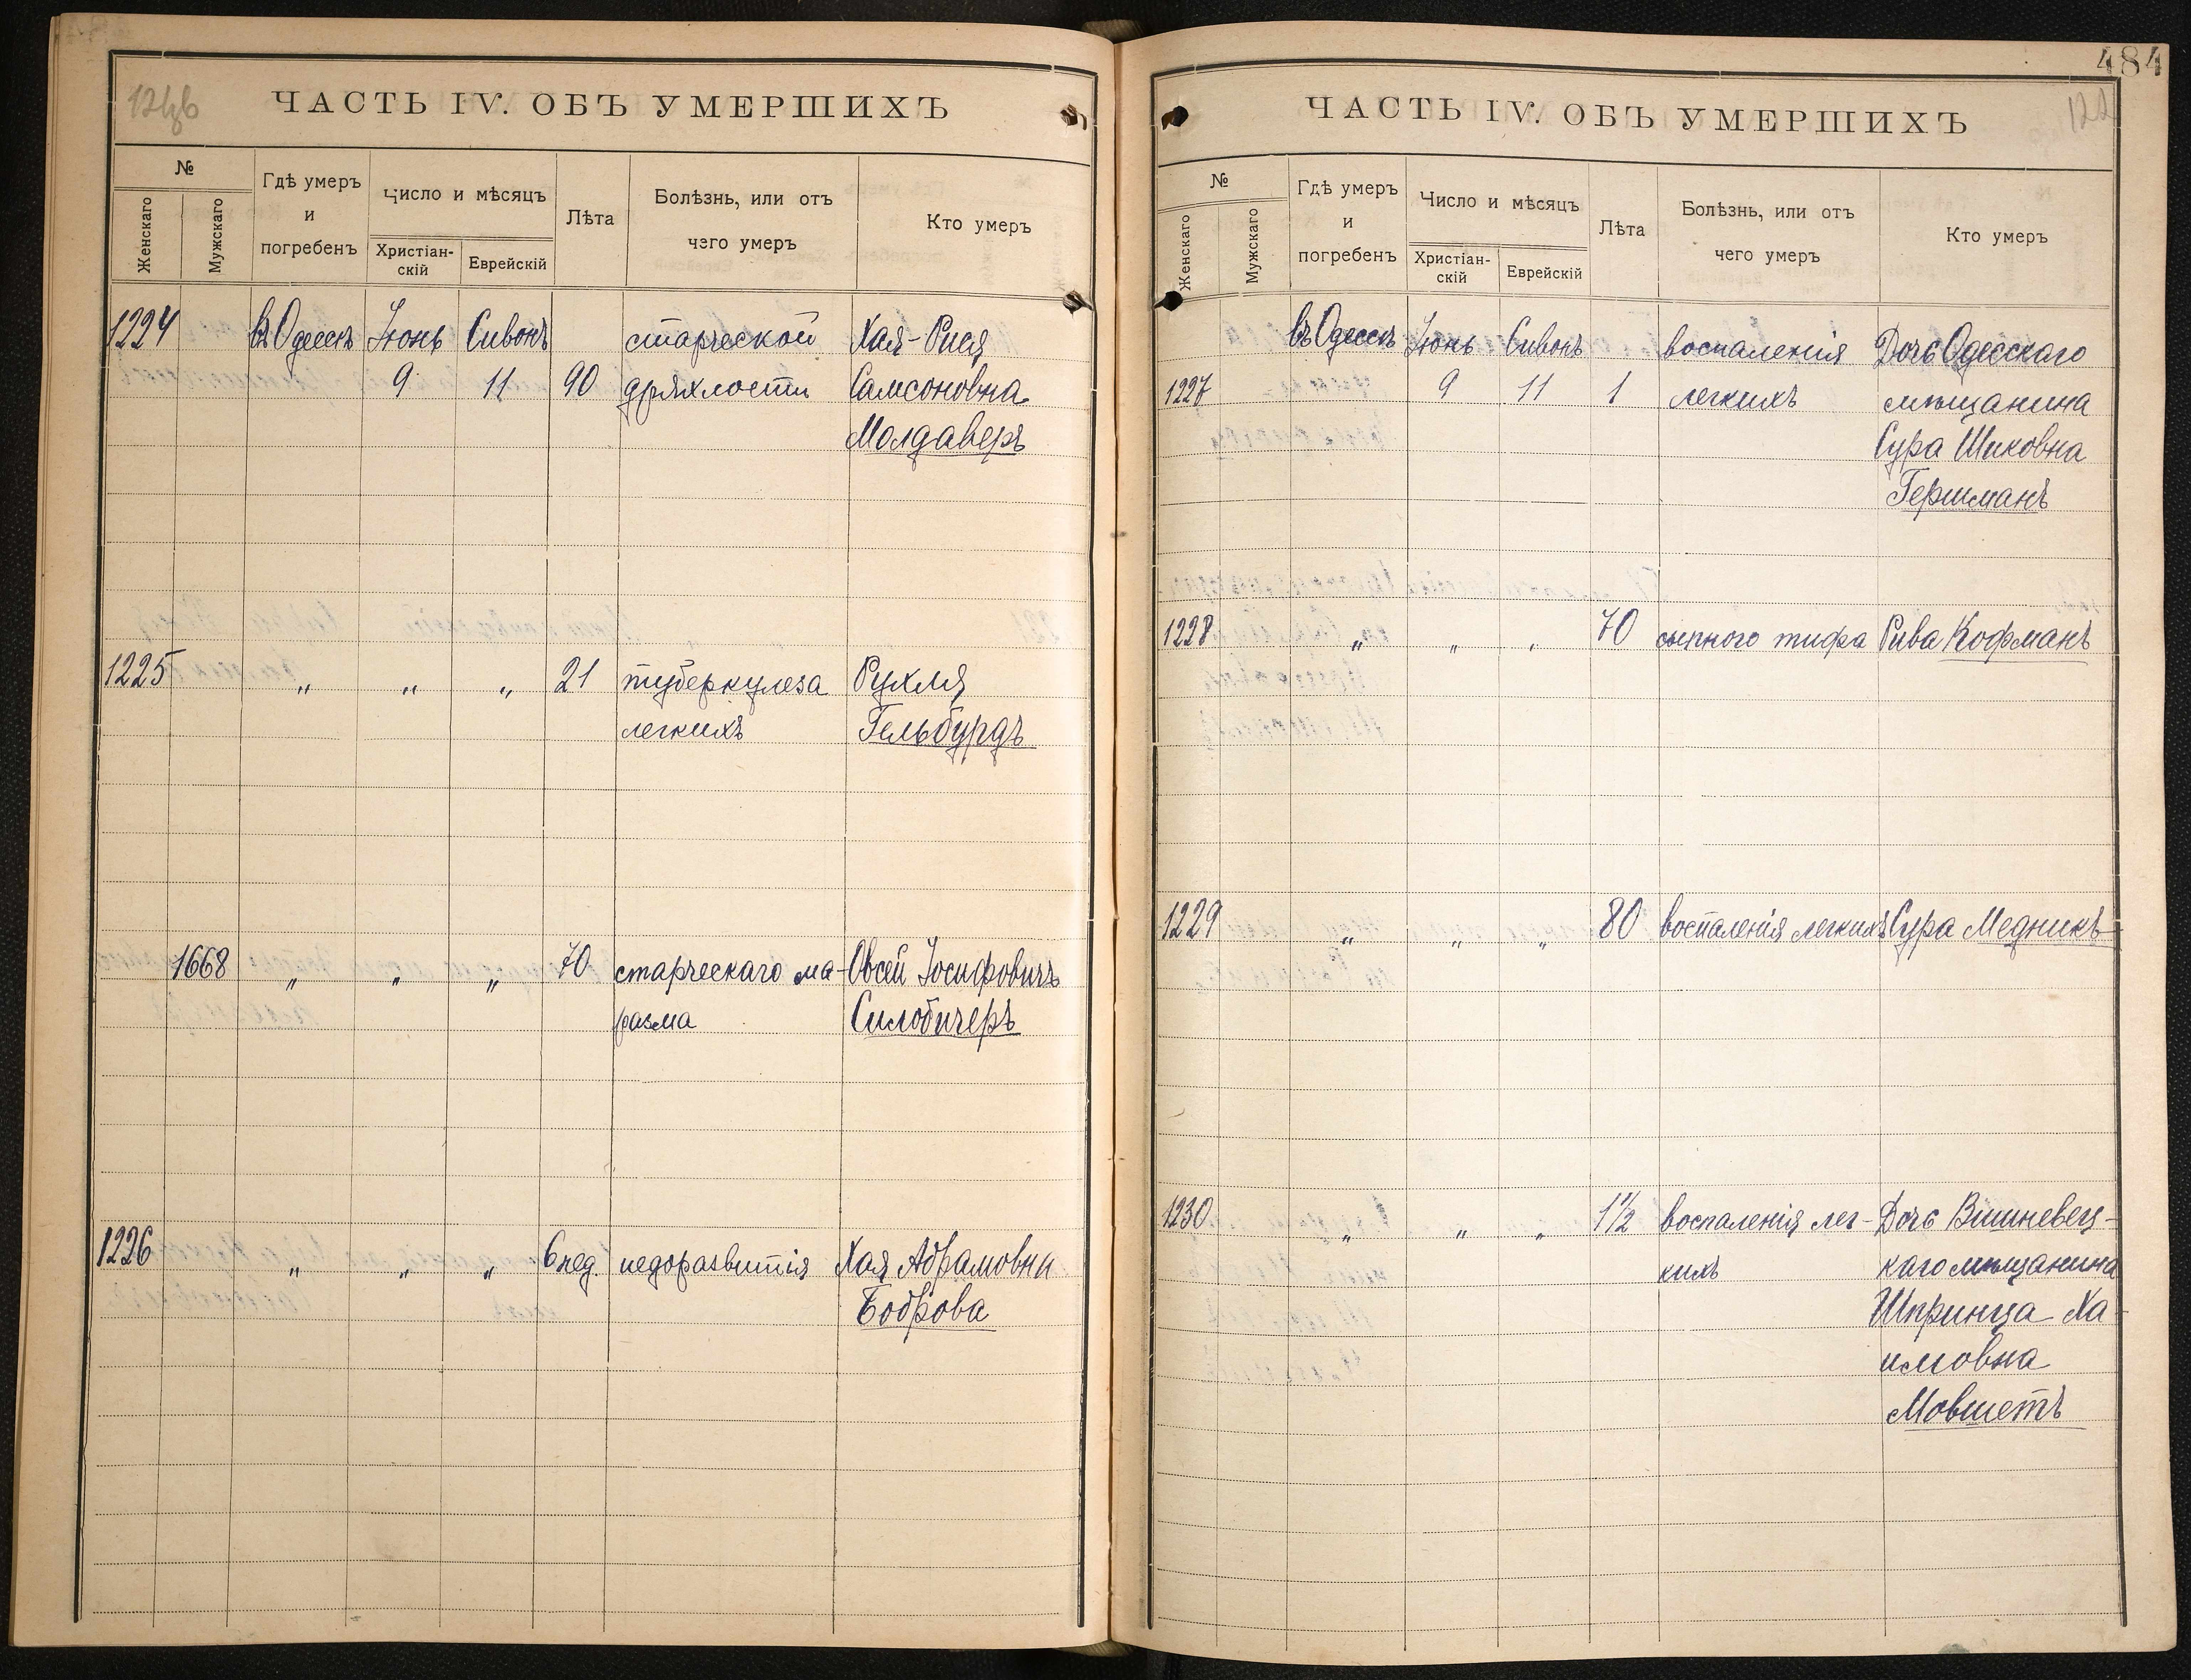 ЧАСТЬ IV. ОБЪ УМЕРШИХЪ
№
Женскаго
Мужскаго
Гдѣ умеръ
и
погребенъ
Число и мѣсяцъ
Христіан-
скій
Еврейскій
Лѣта
Болѣзнь, или отъ
чего умеръ
Кто умеръ
1224 въ Одессѣ Іюнь Сивонъ старческой Хая-Рися
9 11 90 дряхлости Самсоновна
Молдаверъ
1225 " " " 21 туберкулеза Рухля
легкихъ Гельбурдъ
1668 " " " 70 старческаго ма- Овсей Іосифовичъ
разма Силобичеръ
1226 " " " 6 нед. недоразвитія Хая Абрамовна
Боброва
484
122
ЧАСТЬ IV. ОБЪ УМЕРШИХЪ
№
Женскаго
Мужскаго
Гдѣ умеръ
и
погребенъ
Число и мѣсяцъ
Христіан-
скій
Еврейскій
Лѣта
Болѣзнь, или отъ
чего умеръ
Кто умеръ
въ Одессѣ Іюнь Сивонъ воспаленія Дочь Одесскаго
1227 9 11 1 легкихъ мѣщанина
Сура Шиковна
Гершманъ
1228 " " " 70 сыпного тифа Рива Кофманъ
1229 " " " 80 воспаленія легкихъ Сура Медникъ
1230 " " " 1½ воспаленія лег- Дочь Вишневец-
кихъ каго мѣщанина
Шпринца Ха-
имовна
Мовшетъ